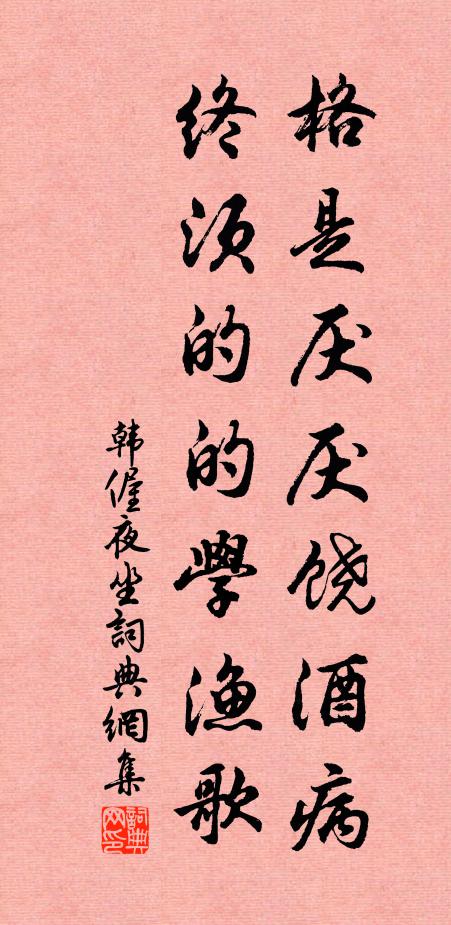 格是厌厌饶酒病
终须的的學渔歌
韩偓夜坐詞典網集
詞典网印